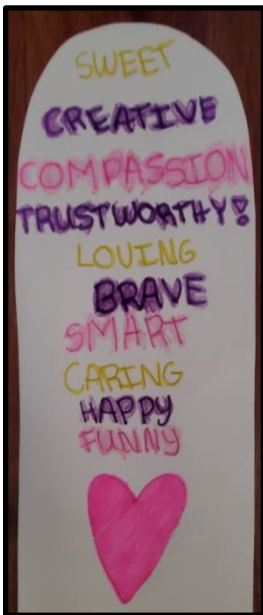 SWEET
CREATIVE
COMPASSION
TRUSTWORTHY!
LOVING
BRAVE
SMART
CARING
HAPPY
FUNNY